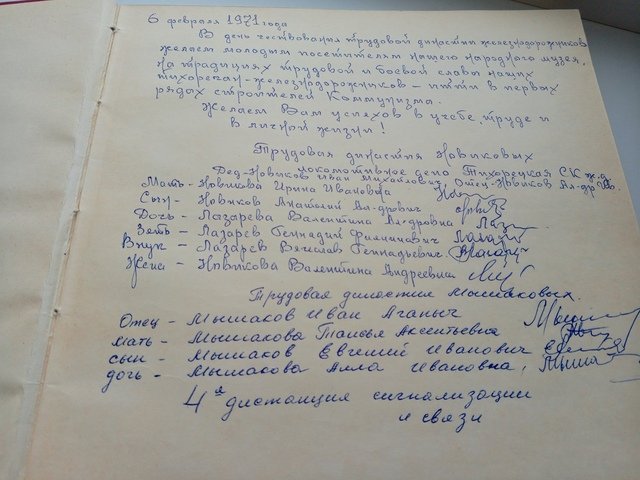 6 февраля 1971 года
В день чествования трудовой династии железнодорожников
желаем молодым посетителям нашего народного музея,
на традициях трудовой и боевой славы наших
тихорецан-железнодорожников – идти в первых
рядах строителей Коммунизма.
Желаем Вам успехов в учебе, труде и
в личной жизни!
Трудовая династия Новиковых
локомотивное депо Тихорецкая С.К.ж.д.
Дед-Новиков Иван Михайлович Отец-Новиков Ал-др Ив.
Мать- Новикова Ирина Ивановна
Сын - Новиков Анатолий Ал-дрович
Дочь - Лазарева Валентина Ал-дровна
Зять - Лазарев Геннадий Филиппович
Внук - Лазарев Вячеслав Геннадьевич.
Жена - Новикова Валентина Андреевна
Трудовая династия Мышаковых.
Отец - Мышаков Иван Аганыч
мать - Мышакова Таисья Аксентьевна
сын - Мышаков Евгений Иванович
дочь - Мышакова Алла Ивановна,
4я дистанция сигнализации
и связи